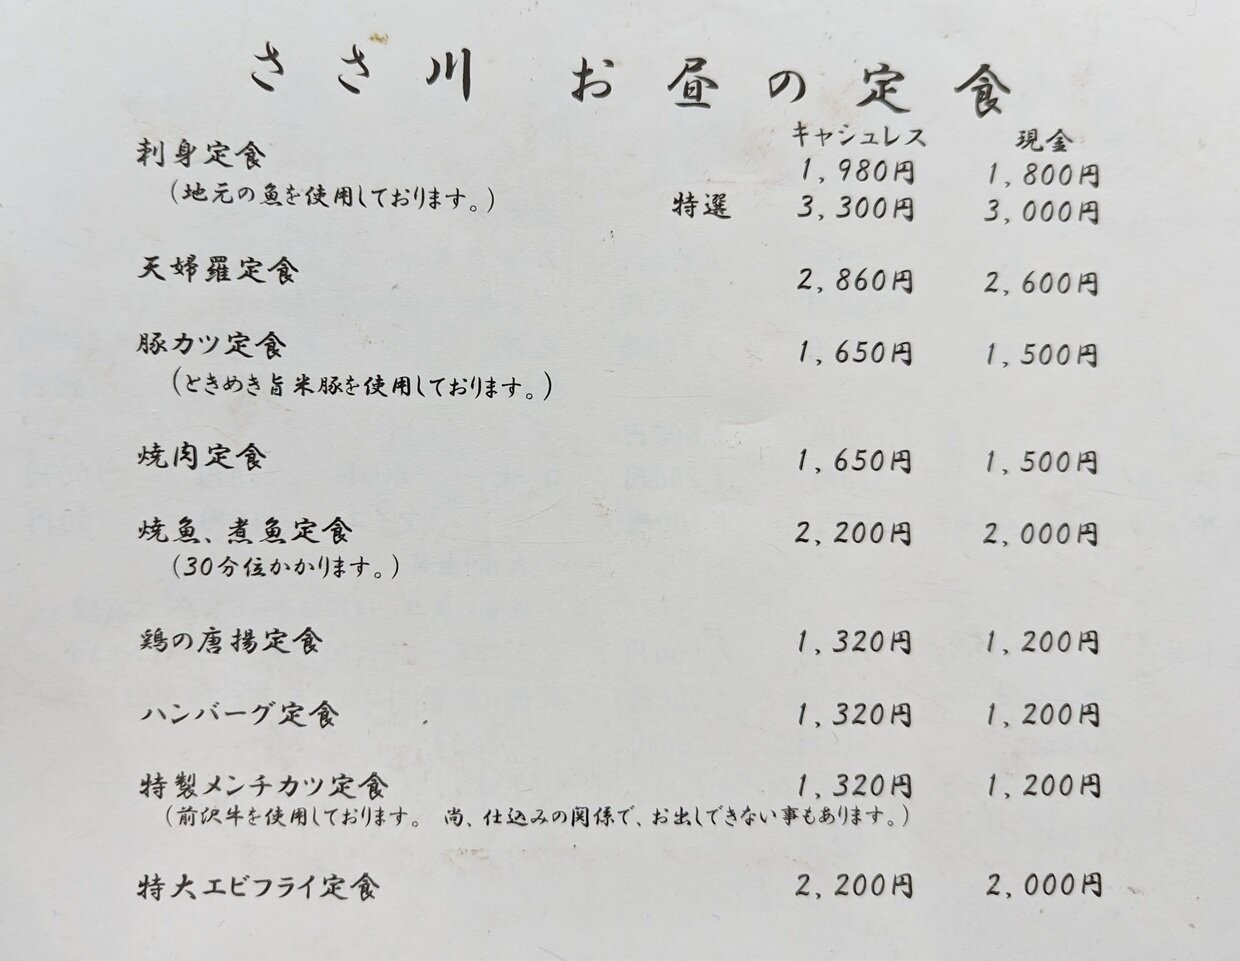 ささ川 お昼の定食
キャシュレス 現金
刺身定食 1,980円 1,800円
(地元の魚を使用しております。) 特選 3,300円 3,000円
天婦羅定食 2,860円 2,600円
豚カツ定食 1,650円 1,500円
(ときめき旨米豚を使用しております。)
焼肉定食 1,650円 1,500円
焼魚、煮魚定食 2,200円 2,000円
(30分位かかります。)
鶏の唐揚定食 1,320円 1,200円
ハンバーグ定食 1,320円 1,200円
特製メンチカツ定食 1,320円 1,200円
(前沢牛を使用しております。 尚、仕込みの関係で、お出しできない事もあります。)
特大エビフライ定食 2,200円 2,000円